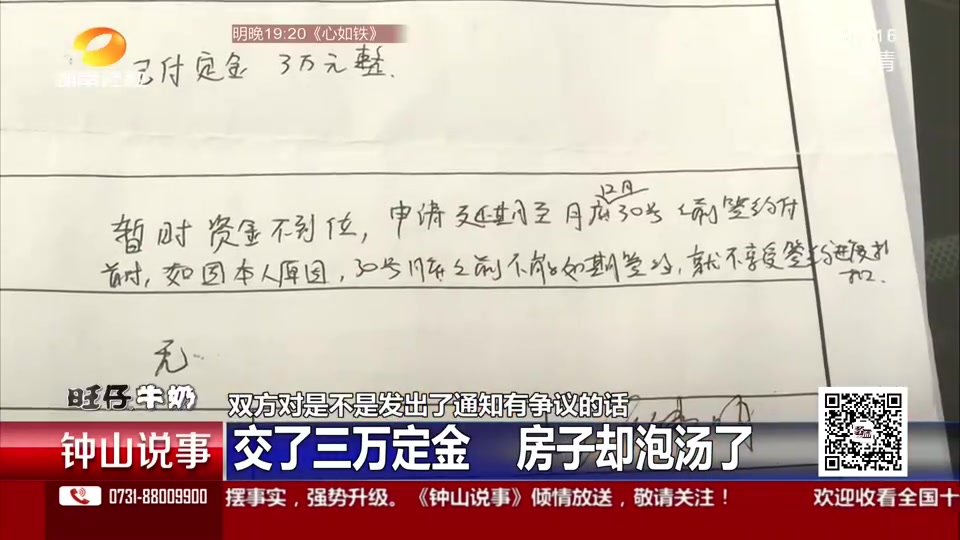 明晚19:20《心如铁》
已付定金 3万元整.
12月
暂时资金不到位，申请延期至月底30号之前签约付
首付，如因本人原因，30号月底之前不能如期签约，就不享受签约进度折
扣.
无.
旺仔牛奶
双方对是不是发出了通知有争议的话
钟山说事
交了三万定金 房子却泡汤了
0731-88009900
摆事实，强势升级。《钟山说事》倾情放送，敬请关注！
欢迎收看全国十